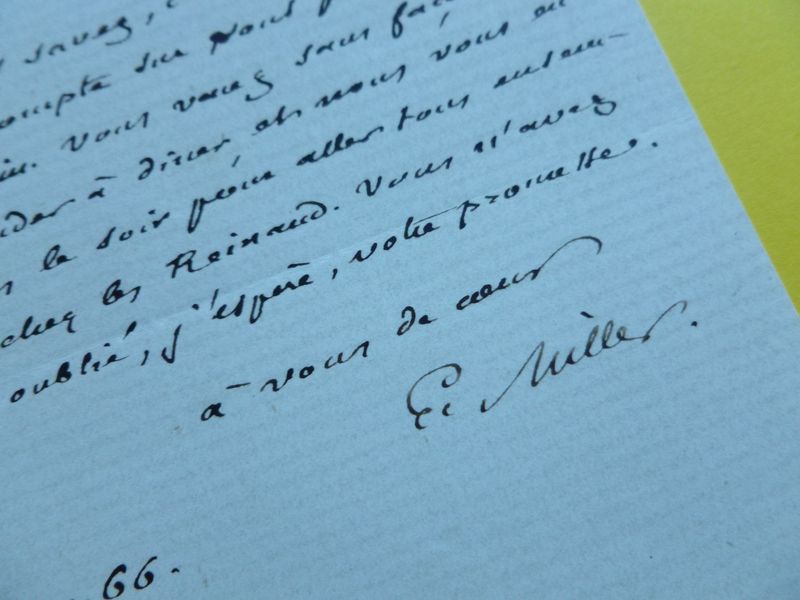 savez,
compte sur vous
vous venez sans
à diner et nous vous en
le soir pour aller tous ensem-
chez les Reinaud. Vous n'avez
oublié, j'espère, votre promesse.
à vous de cœur
E. Miller.
66.